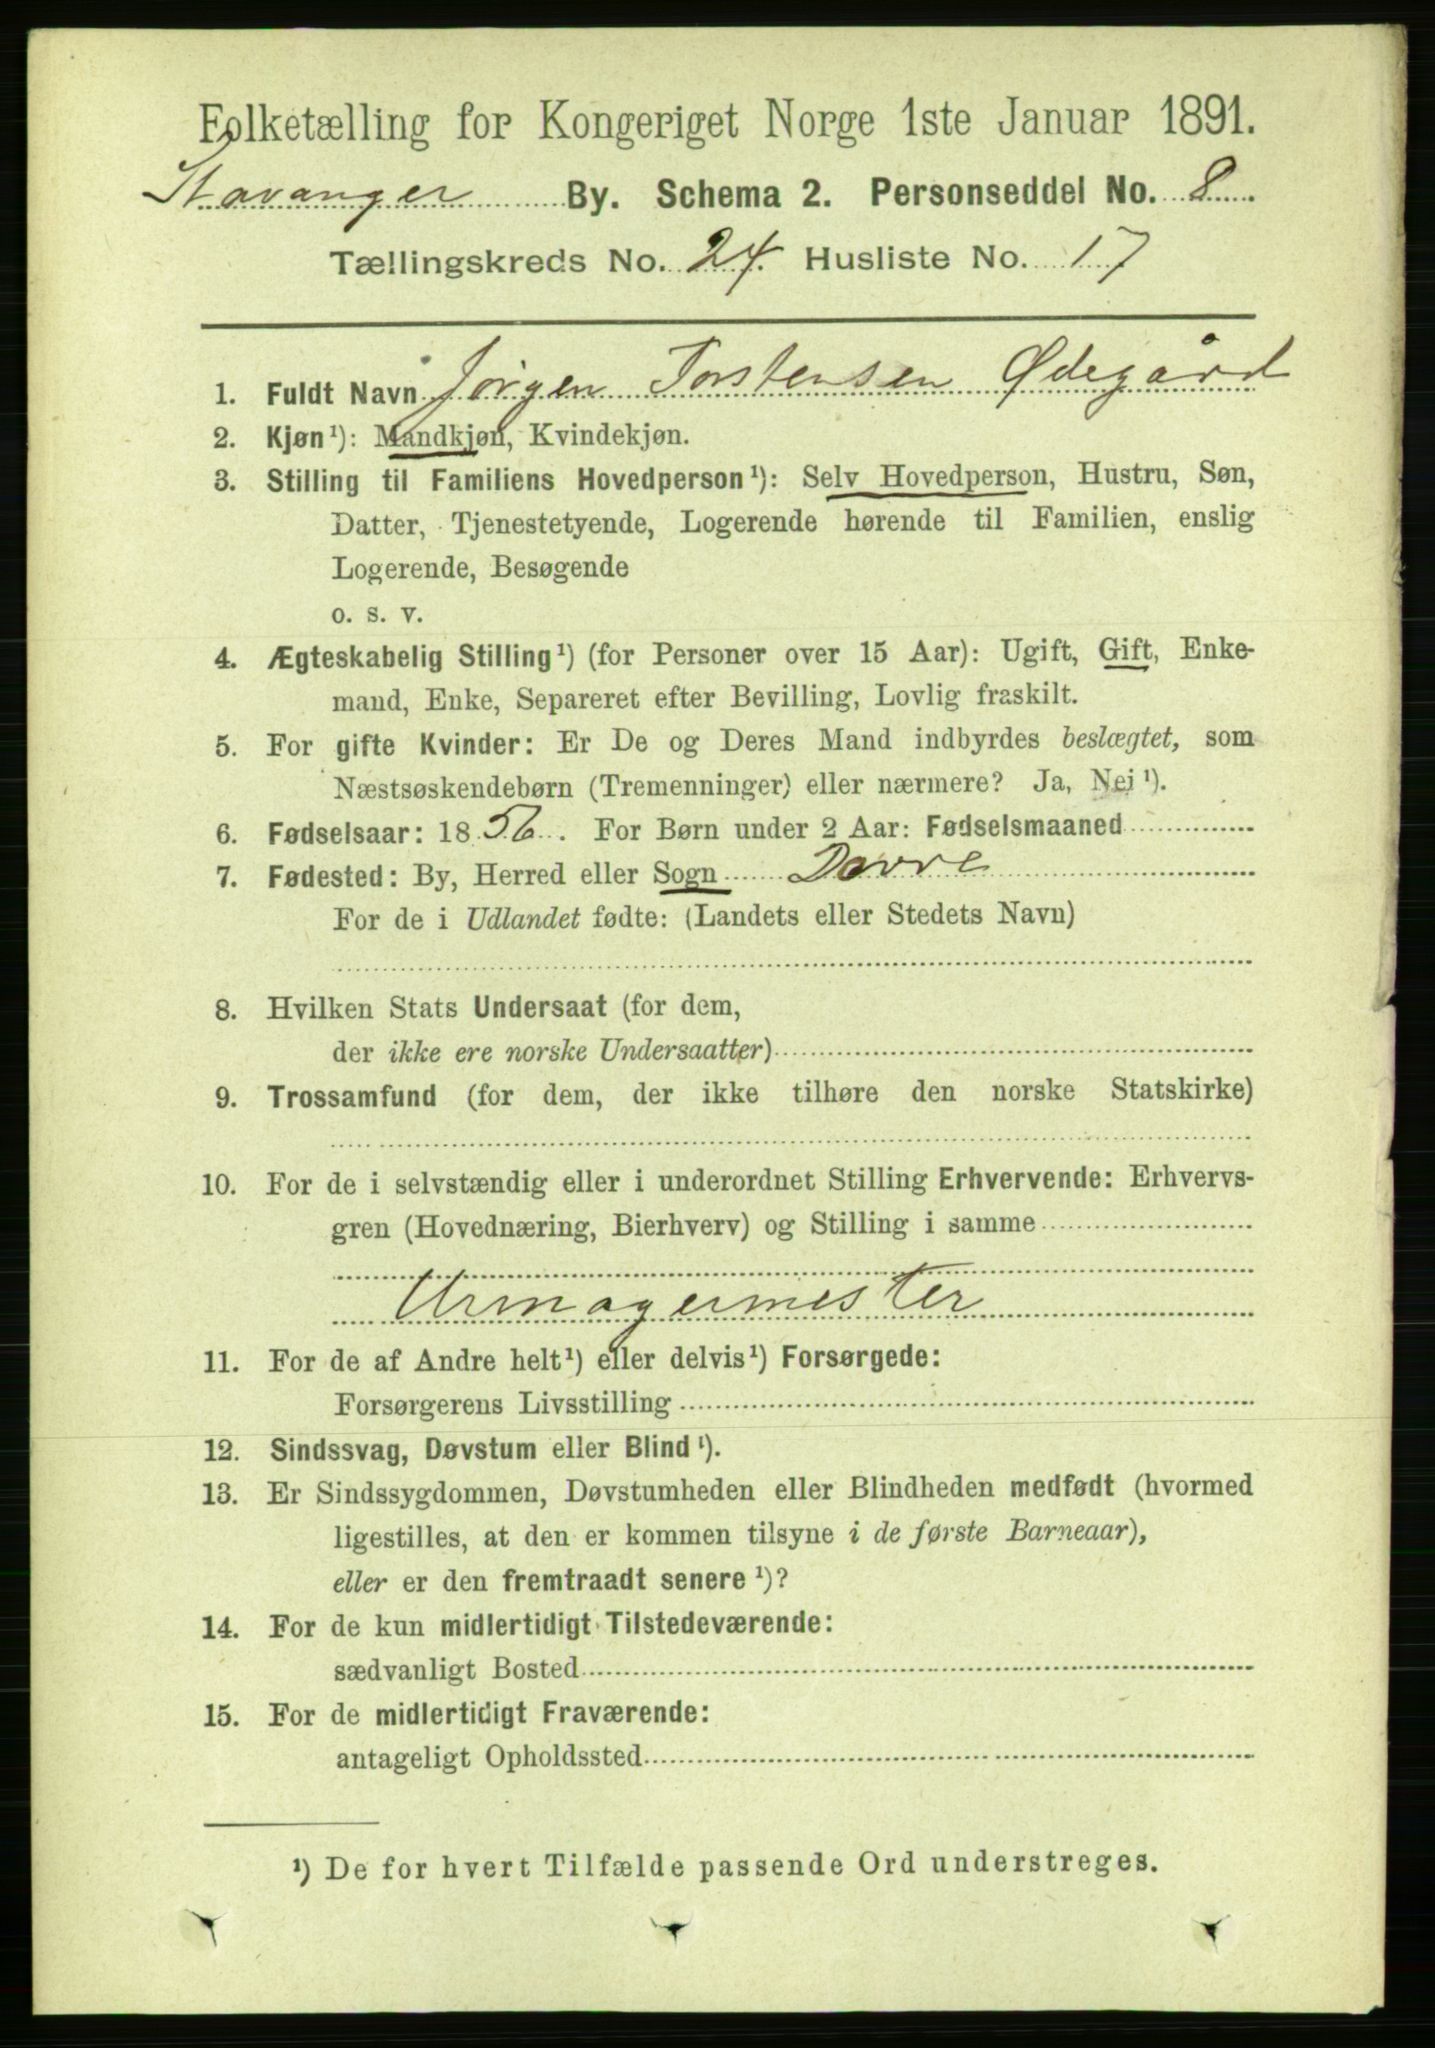 Folketælling for Kongeriget Norge 1ste Januar 1891.
Stavanger By. Schema 2. Personseddel No. 8
Tællingskreds No. 24. Husliste No. 17
1. Fuldt Navn Jörgen Torstensen Ødegård
2. Kjøn¹): Mandkjøn, Kvindekjøn.
3. Stilling til Familiens Hovedperson¹): Selv Hovedperson, Hustru, Søn,
Datter, Tjenestetyende, Logerende hørende til Familien, enslig
Logerende, Besøgende
o. s. v.
4. Ægteskabelig Stilling¹) (for Personer over 15 Aar): Ugift, Gift, Enke-
mand, Enke, Separeret efter Bevilling, Lovlig fraskilt.
5. For gifte Kvinder: Er De og Deres Mand indbyrdes beslægtet, som
Næstsøskendebørn (Tremenninger) eller nærmere? Ja, Nei¹).
6. Fødselsaar: 1856. For Børn under 2 Aar: Fødselsmaaned
7. Fødested: By, Herred eller Sogn Dovre
For de i Udlandet fødte: (Landets eller Stedets Navn)
8. Hvilken Stats Undersaat (for dem,
der ikke ere norske Undersaatter)
9. Trossamfund (for dem, der ikke tilhøre den norske Statskirke)
10. For de i selvstændig eller i underordnet Stilling Erhvervende: Erhvervs-
gren (Hovednæring, Bierhverv) og Stilling i samme
Urmagermester
11. For de af Andre helt¹) eller delvis¹) Forsørgede:
Forsørgerens Livsstilling
12. Sindssvag, Døvstum eller Blind¹).
13. Er Sindssygdommen, Døvstumheden eller Blindheden medfødt (hvormed
ligestilles, at den er kommen tilsyne i de første Barneaar),
eller er den fremtraadt senere¹)?
14. For de kun midlertidigt Tilstedeværende:
sædvanligt Bosted
15. For de midlertidigt Fraværende:
antageligt Opholdssted
¹) De for hvert Tilfælde passende Ord understreges.